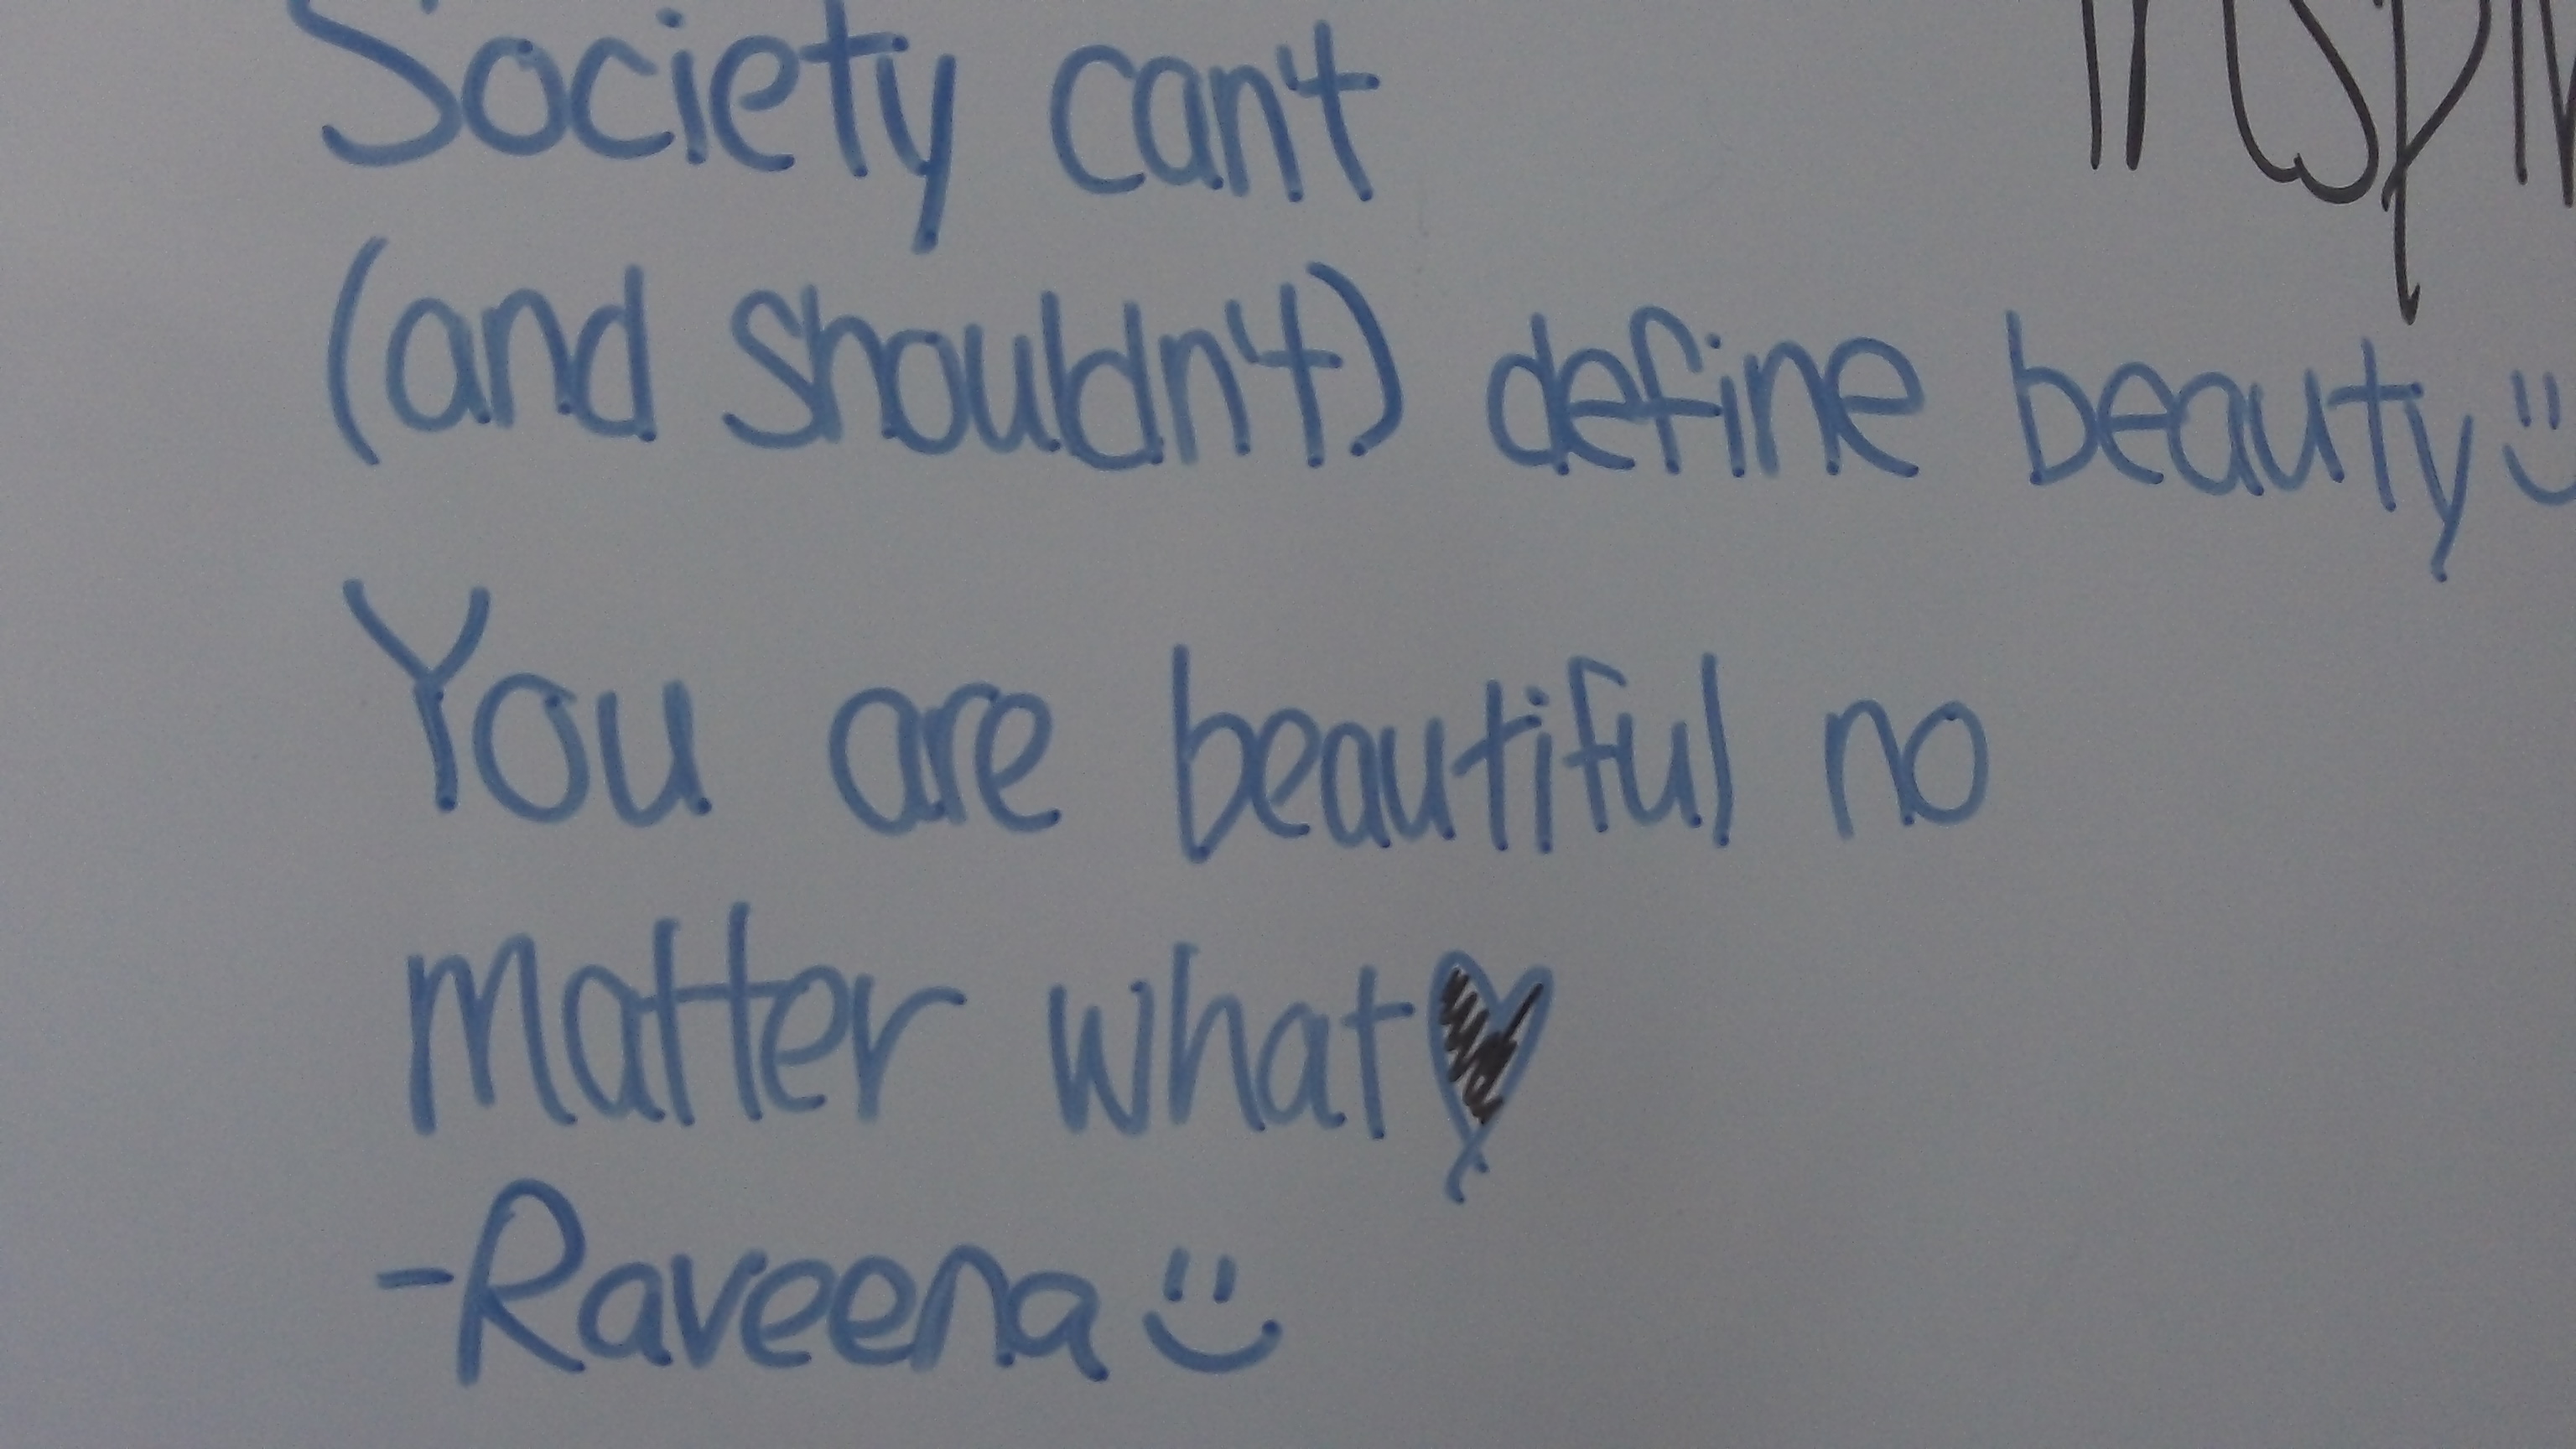 Society can't
(and shouldn't) define beauty :)
You are beautiful no
matter what ♡
-Raveena :)